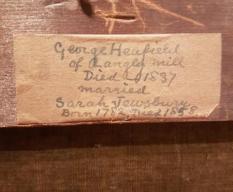 George Henfield
of Langly Mill
Died 1837
married
Sarah Jewsbury
Born 1782 Died 1858